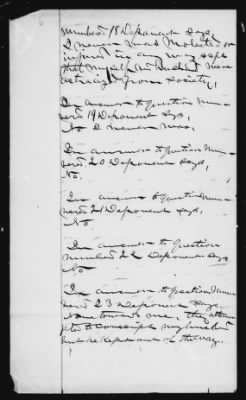 Number 18 Deponent Says
I never was Molested or
injured in any way, except
that myself and Husband were
estranged from Society,
In answer to Question Num-
ber 19 Deponent Says,
No I never was,
In answer to Question Num-
ber 20 Deponent Says,
No.
In answer to Question Num-
ber 21 Deponent Says,
No.
In answer to Question
number 22 Deponent Says
No
In answer to Question Num-
ber 23 Deponent Says,
None towards me, they attem-
pted to conscript my husband
but he Kept out of the way.